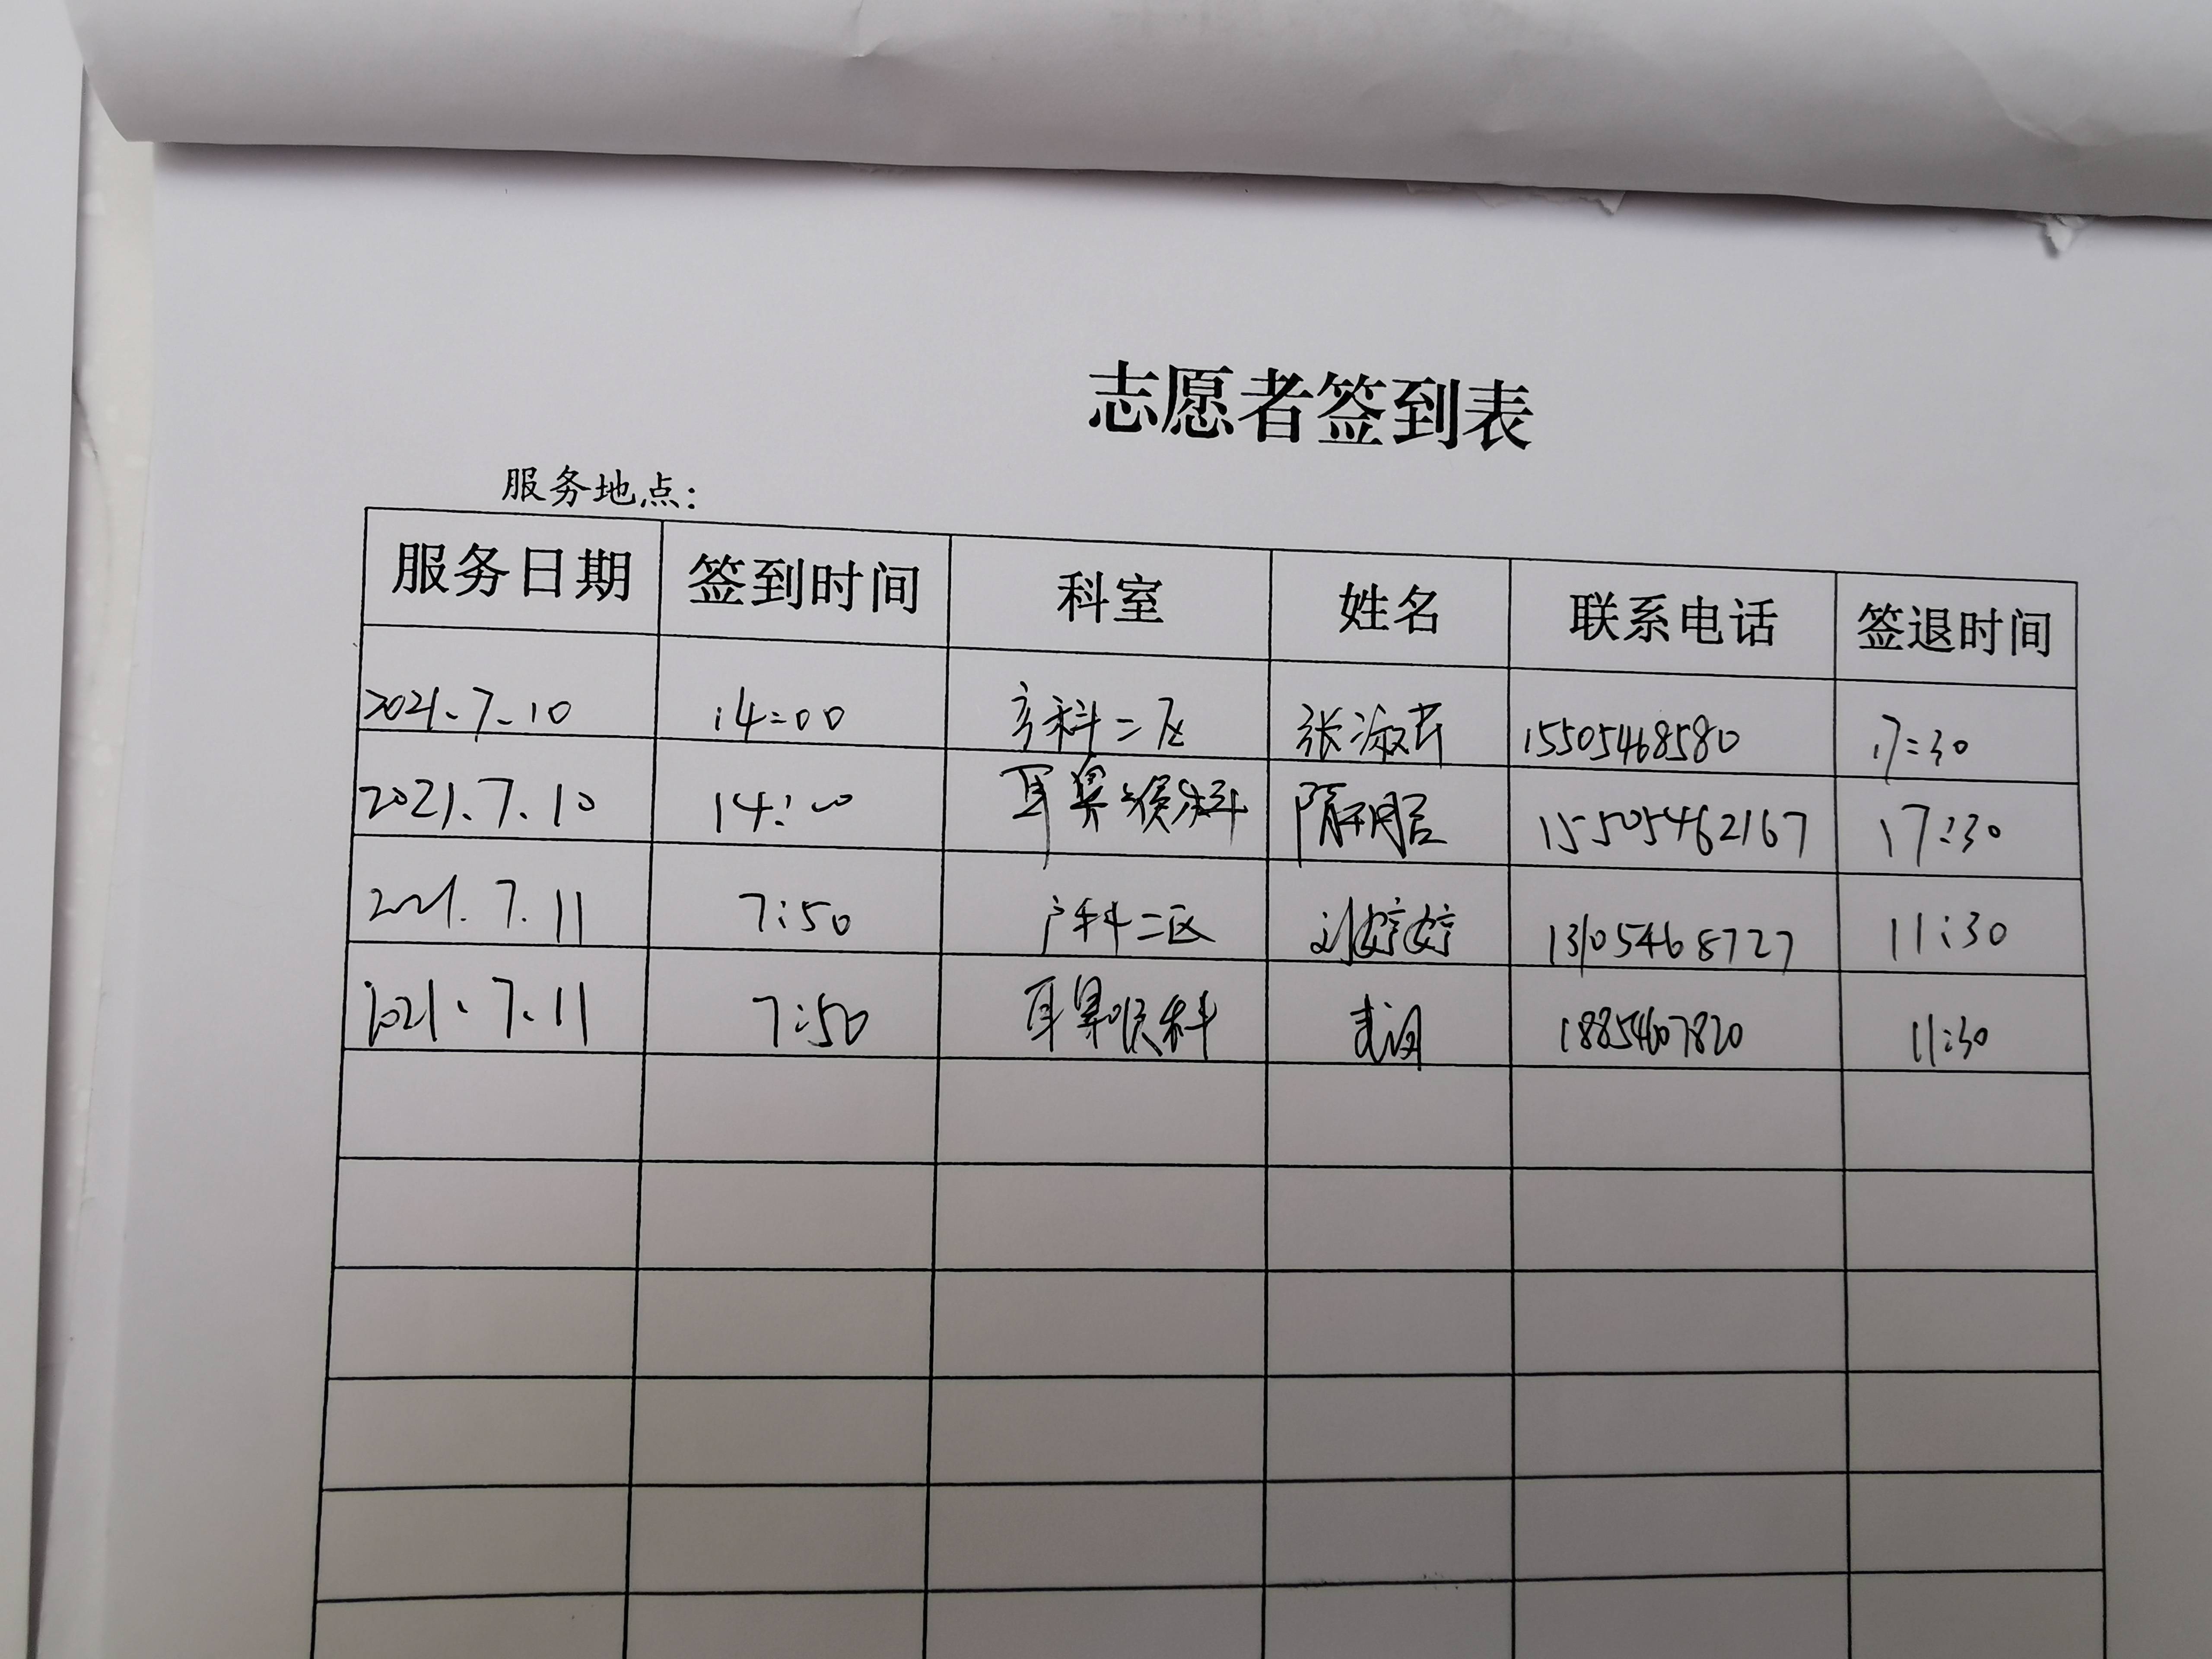 志愿者签到表
服务地点：
服务日期 签到时间 科室 姓名 联系电话 签退时间
2021.7.10 14:00 产科二区 张淑芹 15505468580 17:30
2021.7.10 14:00 耳鼻喉科 隋 15505462167 17:30
2021.7.11 7:50 产科二区 刘婷婷 13105468727 11:30
2021.7.11 7:50 耳鼻喉科 18854607820 11:30